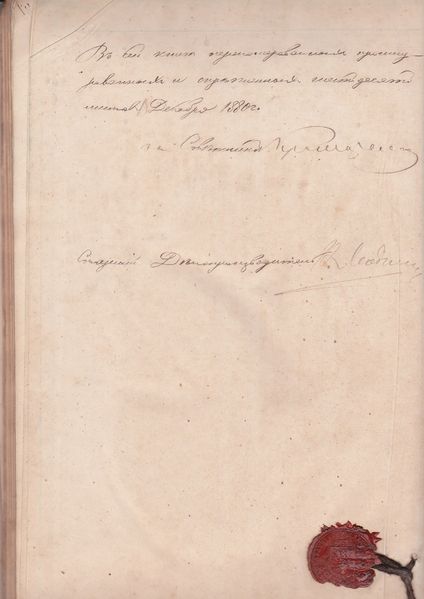 Въ сей книгѣ перномерованныхъ прошну-
рованныхъ и опечатанныхъ шестьдесятъ
листовъ Декабря 1880 г.
за Совѣтника
Старшій Дѣлопроизводитель